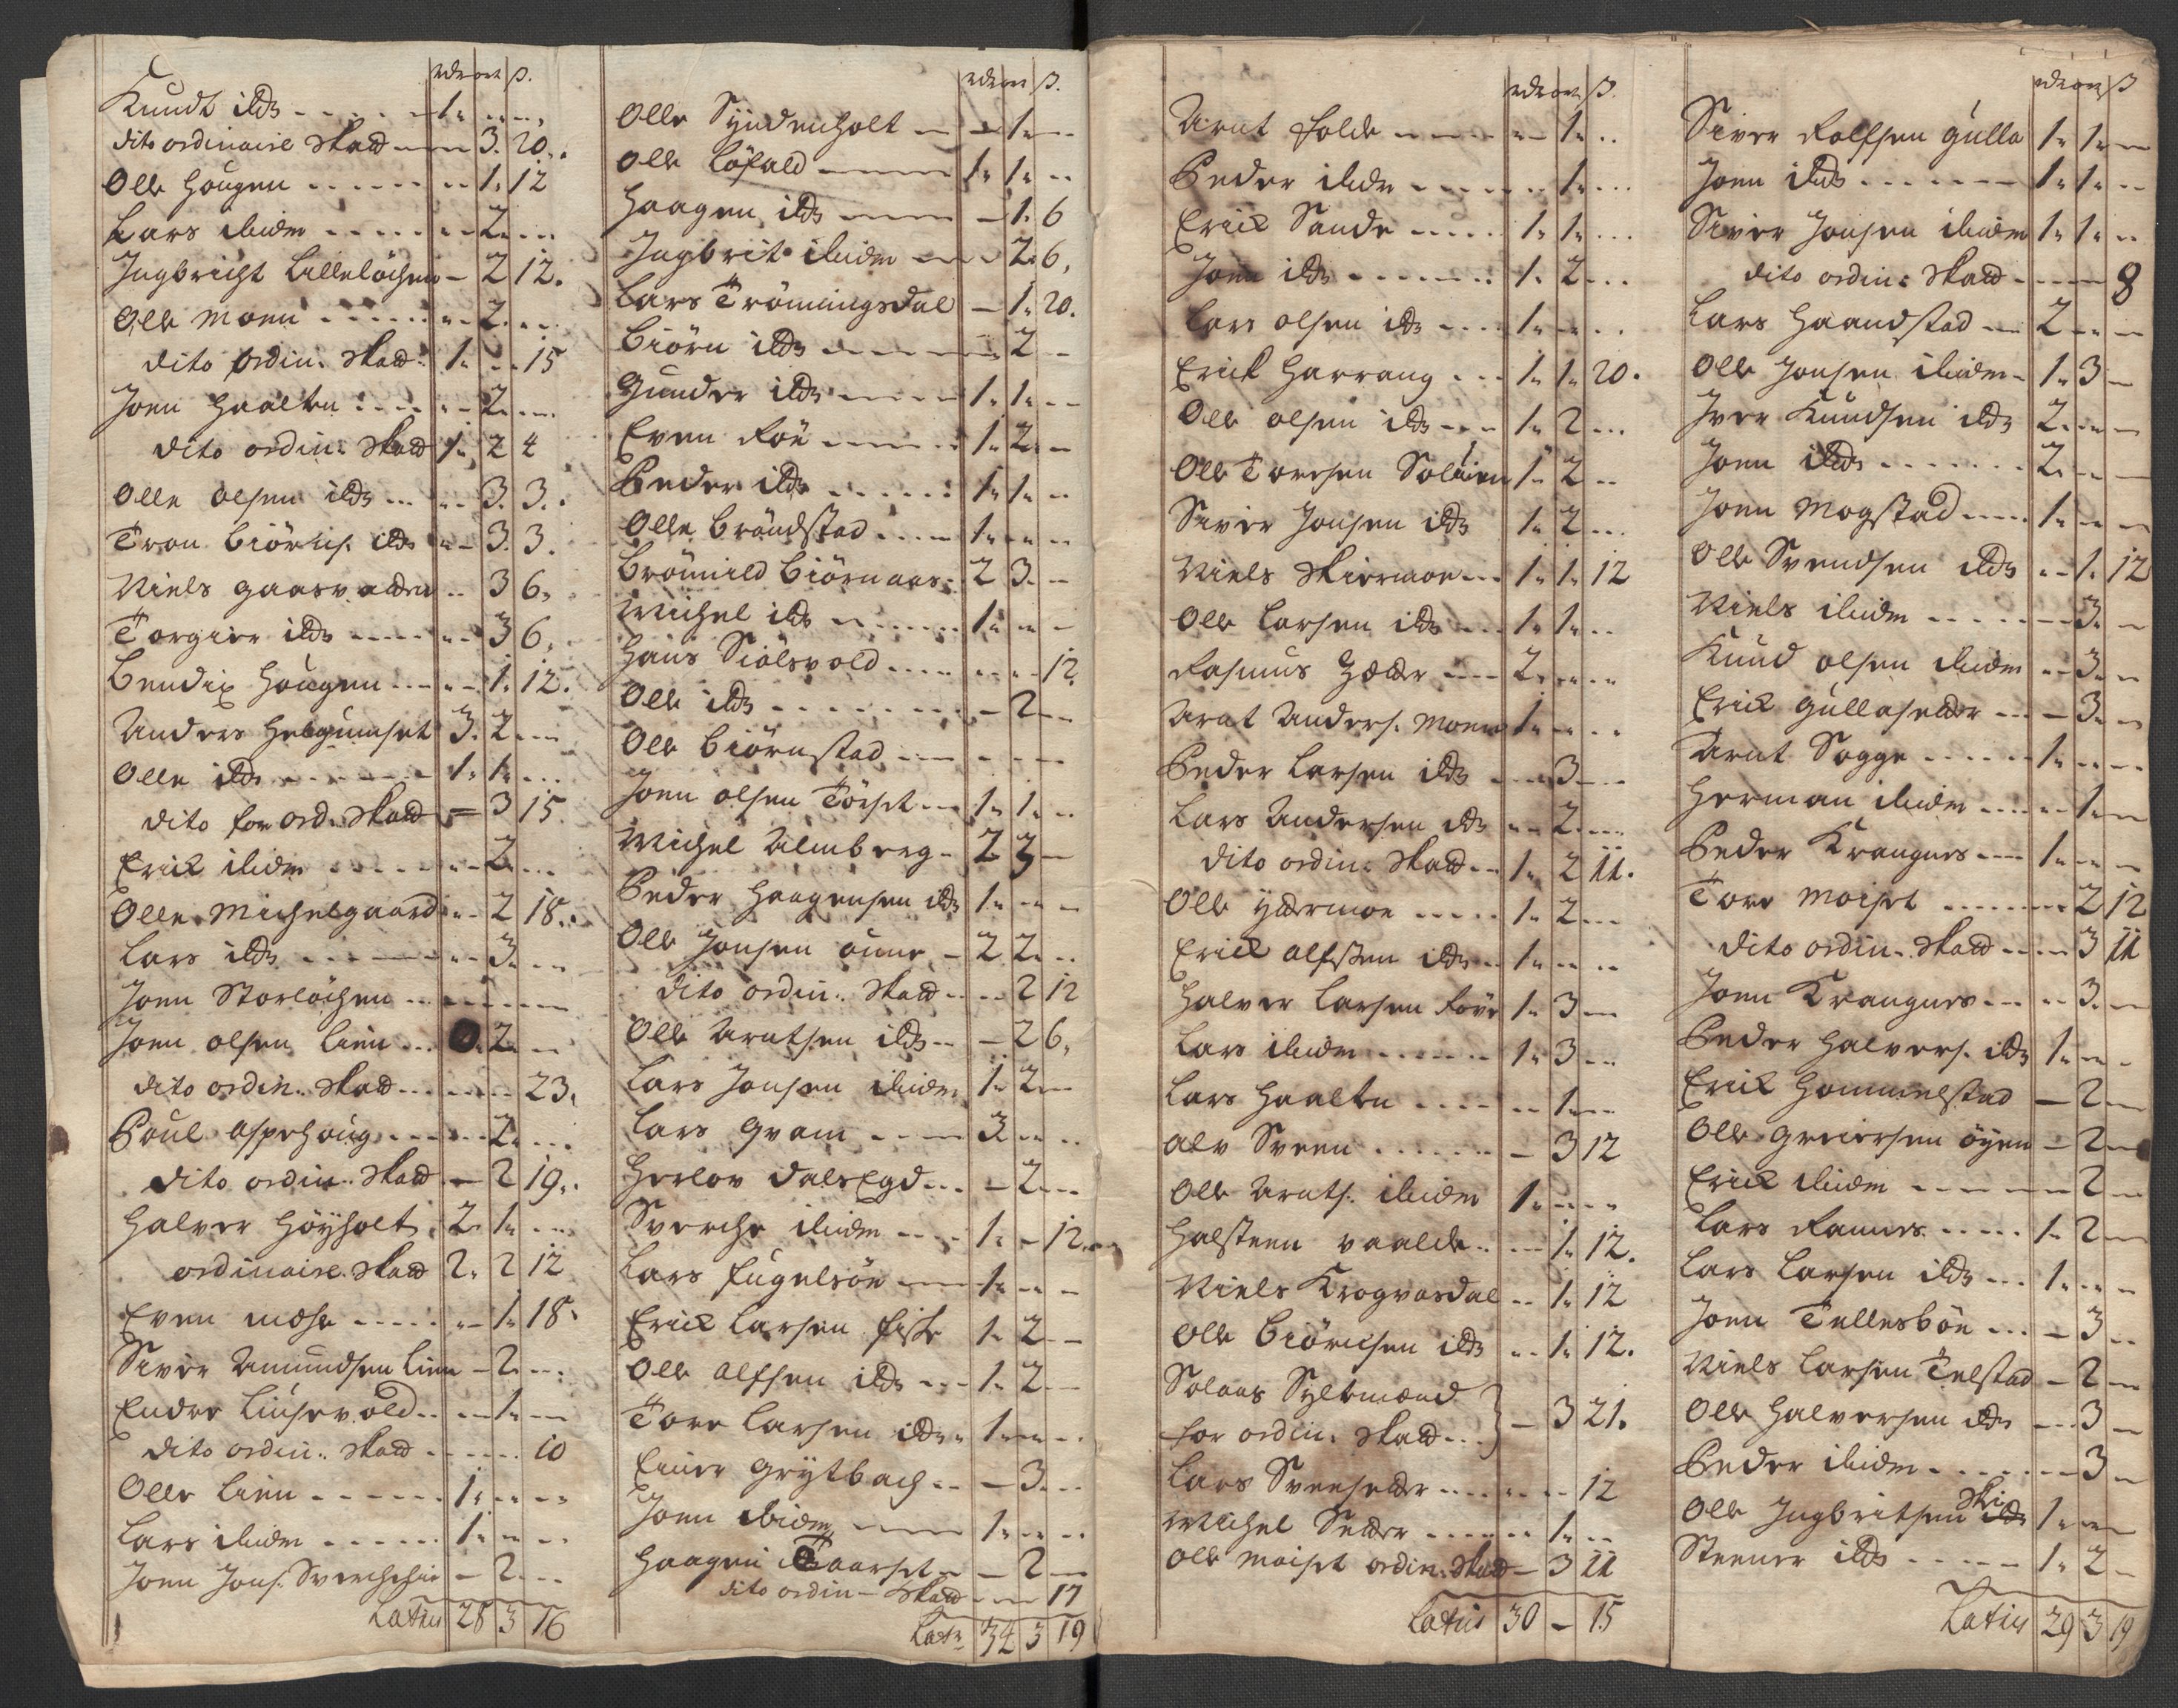 rdr ort ß.
Knudt ibd 1 - -
dito ordinaire Skatt - 3. 20.
Olle Hougen - 1. 12
Lars ibidm - 2 -
Ingbricht Lillelöchen - 2 12.
Olle Moen - 2 -
dito ordin: Skatt 1 - 15
Joen Haalten - 2 -
dito ordin: Skatt 1. 2 4
Olle Olsen ibd - 3. 3.
Tron Biörns. ibd - 3. 3.
Niels Gaasvadden - 3 6.
Torgier ibd - 3 6.
Bendix Hougen - 1. 12.
Anders Helgumset 3. 2 -
Olle ibd 1. 1. -
dito for ord. Skatt - 3 15.
Erick ibidm - 2 -
Olle Michelgaard - 2 18.
Lars ibd - 3. -
Joen Storlöchen - - -
Joen Olsen Lien 0. 2 -
dito ordin. Skatt - - 23.
Poul Aspehoug - 2 -
dito ordin. Skatt - 2 19.
Halver Höyholt 2. 1. -
ordinaire Skatt 2. 2 12
Even Mose - 1. 18.
Siver Amundsen Lien - 2 -
Endre Liusevold - 1 -
dito ordin. Skatt - - 10
Olle Lien 1. - -
Lars ibidm 1. - -
Joen Jons. - 2 -
Latus 28 3 16
rdr ort ß.
Olle Syndenholt - 1 -
Olle Löfald 1. 1. -
Haagen ibd - 1. 6
Ingbrit ibidm - 2. 6.
Lars Trönningsdal - 1. 20.
Biörn ibd - 2 -
Gunder ibd 1. 1. -
Even Röe 1. 2. -
Peder ibd 1. 1. -
Olle Bröndstad 1. - -
Brönnild Biörnaas 2 3. -
Michel ibd 1. - -
Hans Siölsvold - - 12.
Olle ibd - 2 -
Olle Biörnstad - - -
Joen Olsen Törset 1. 1. -
Michel Almberg 2 3 -
Peder Haagensen ibd 1. - -
Olle Jonsen Oune 2 2. -
dito ordin. Skatt - 2 12
Olle Arntsen ibd - 2 6.
Lars Jonsen ibidm 1. 2 -
Lars Qvam 3. - -
Herlov Dalsegd - 2 -
Sverche ibidm 1. - 12.
Lars Fugelsöe 1. - -
Erick Larsen Fiske 1. 2 -
Olle Alfsen ibd 1. 2 -
Tore Larsen ibd 1. - -
Einer Grytbach - 3. -
Joen ibidm 1. - -
Haagen Taarset - 2 -
dito ordin - Skatt - - 17
Lats 34 3 19
rdr ort ß.
Arnt Folde - 1. -
Peder ibidm - 1. -
Erick Sande 1. 1. -
Joen ibd 1. 2 -
Lars Olsen ibd 1. - -
Erick Harrang 1. 1. 20.
Olle Olsen ibd 1. 2 -
Olle Toresen Solöien 1. 2 -
Siver Jonsen ibd 1. 2 -
Niels Skiermoe 1. 1. 12
Olle Larsen ibd 1. 1. -
Rasmus 2 - -
Arnt Anders. Moen 1. - -
Peder Larsen ibd - 3 -
Lars Andersen ibd - 2 -
dito ordin. Skatt 1. 2 11.
Olle Yttermoe 1. 2 -
Erick Alfsen ibd 1. - -
Halver Larsen Röe 1. 3 -
Lars ibidm 1. 3 -
Lars Haalten - 1. -
Alv Sveen - 3 12
Olle Arnts. ibidm 1. - -
Halsteen Vaalde - 1. 12.
Niels Krogvasdal - 1. 12
Olle Biörnsen ibd - 1. 12.
Solaas Syltmænd
for ordin. Skatt - 3 21.
Lars Sveesetter - - 12
Michel Setter - 1. -
Olle Moiset ordin. Skatt - 3 11
Latus 30 - 15
rdr ort ß
Siver Rolfsen Gulla 1. 1. -
Joen ibd 1. 1. -
Siver Jonsen ibidm 1. 1. -
dito ordin: Skatt - - 8
Lars Haandstad 2 - -
Olle Jonsen ibidm 1. 3 -
Iver Knudsen ibd 2. - -
Joen ibd 2. - -
Joen Mogstad 1. - -
Olle Svendsen ibd - 1. 12
Niels ibidm - 3. -
Knud Olsen ibidm - 3. -
Erick Gullasetter - 3. -
Arnt Sogge 1. - -
Herman ibidm - 1. -
Peder Krangnes 1. - -
Tore Moiset - 2 12
dito ordin. Skatt - 3 11
Joen Krangnes - 3. -
Peder Halvers. ibd 1. - -
Erick Hommelstad - 2 -
Olle Greiersen Öyen - 2 -
Erick ibidm - 2 -
Lars Ramnes 1. 2 -
Lars Larsen ibd 1. - -
Joen Tellesböe - 3 -
Niels Larsen Telstad - 2 -
Olle Halversen ibd - 3 -
Peder ibidm - 3 -
Olle Ingbritsen Ski 1. - -
Steener ibd 1. 2 -
Latus 29 3 19